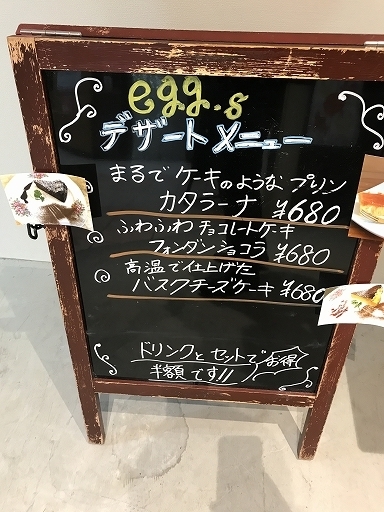 egg.s
デザートメニュー
まるでケーキのようなプリン
カタラーナ ¥680
ふわふわチョコレートケーキ
フォンダンショコラ ¥680
高温で仕上げた
バスクチーズケーキ ¥680
ドリンクとセットでお得
半額です!!